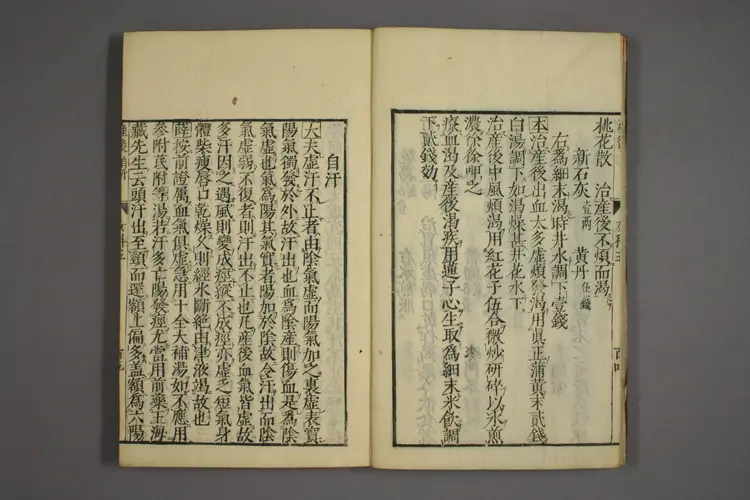 桃花散 治產後不煩而渴
新石灰 壹兩 黃丹 伍錢
右為細末渴時井水調下壹錢
本治產後出血太多虛煩發渴用真正蒲黃末貳錢
白湯調下如渴燥甚井花水下
治產後中風煩渴用紅花子伍合微炒研碎以水煎
濃徐徐呷之
療血渴及產後渴疾用蓮子心生取為細末米飲調
下貳錢効
自汗
大夫虛汗不止者由陰氣虛而陽氣加之裏虛表實
陽氣獨發於外故汗出也血為陰產則傷血是為陰
氣虛也氣為陽其氣實者陽加於陰故令汗出而陰
氣虛弱不復者則汗出不止也凡產後血氣皆虛故
多汗因之遇風則變成痙縱不成痙亦虛乏短氣身
體柴瘦唇口乾燥久則經水斷絕由津液竭故也
薛按前證屬血氣俱虛急用十全大補湯如不應用
參附芪附等湯若汗多亡陽發痙尤當用前藥王海
藏先生云頭汗出至頸而還額上偏多盖額為六陽